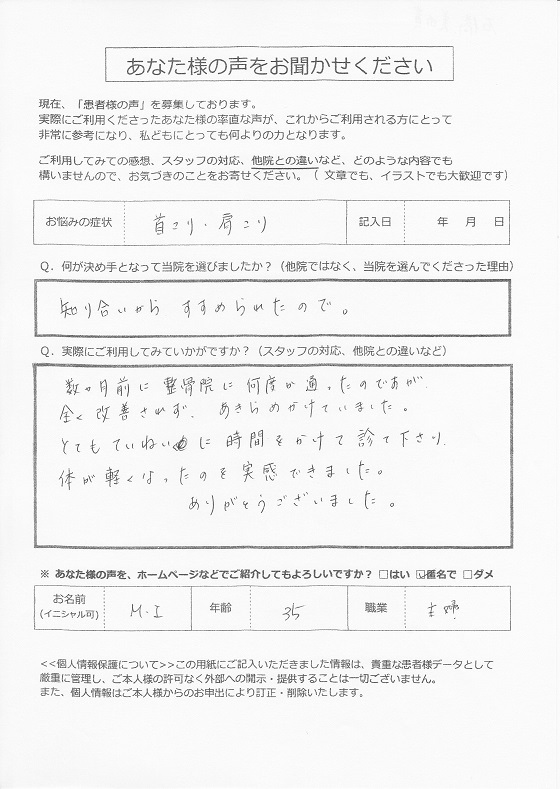 あなた様の声をお聞かせください
現在、「患者様の声」を募集しております。
実際にご利用くださったあなた様の率直な声が、これからご利用される方にとって
非常に参考になり、私どもにとっても何よりの力となります。
ご利用してみての感想、スタッフの対応、他院との違いなど、どのような内容でも
構いませんので、お気づきのことをお寄せください。（文章でも、イラストでも大歓迎です）
お悩みの症状 首こり・肩こり 記入日 年 月 日
Q．何が決め手となって当院を選びましたか？（他院ではなく、当院を選んでくださった理由）
知り合いから すすめられたので。
Q．実際にご利用してみていかがですか？（スタッフの対応、他院との違いなど）
数ヶ月前に整骨院に何度か通ったのですが、
全く改善されず、あきらめかけていました。
とてもていねいに時間をかけて診て下さり、
体が軽くなったのを実感できました。
ありがとうございました。
※ あなた様の声を、ホームページなどでご紹介してもよろしいですか？ □はい ☑匿名で □ダメ
お名前 (イニシャル可) M・I 年齢 35 職業 主婦
<<個人情報保護について>>この用紙にご記入いただきました情報は、貴重な患者様データとして
厳重に管理し、ご本人様の許可なく外部への開示・提供することは一切ございません。
また、個人情報はご本人様からのお申出により訂正・削除いたします。